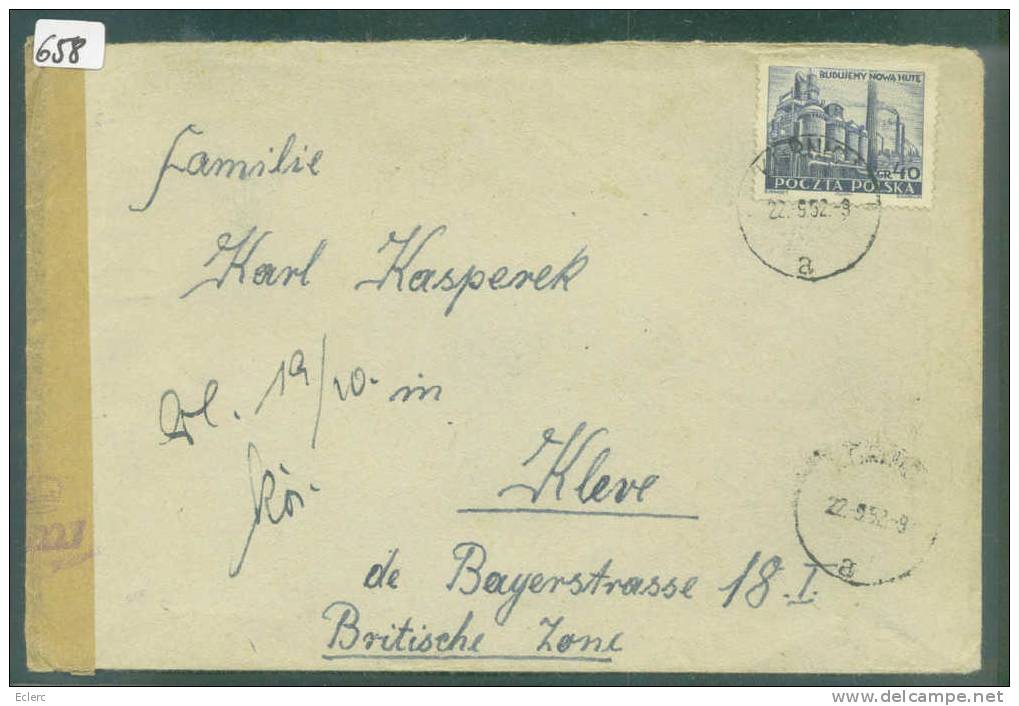 658
BUDUJEMY NOWĄ HUTĘ
GR 40
POCZTA POLSKA
22.-9.52.-9
a
Familie
Karl Kasperek
19/10. in
Kleve
22.-9.52.-9
a
de Bayerstrasse 18.I.
Britische Zone
Eclerc
www.delcampe.net